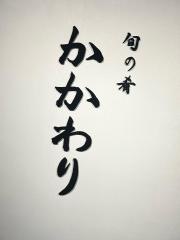 旬の肴
かかわり